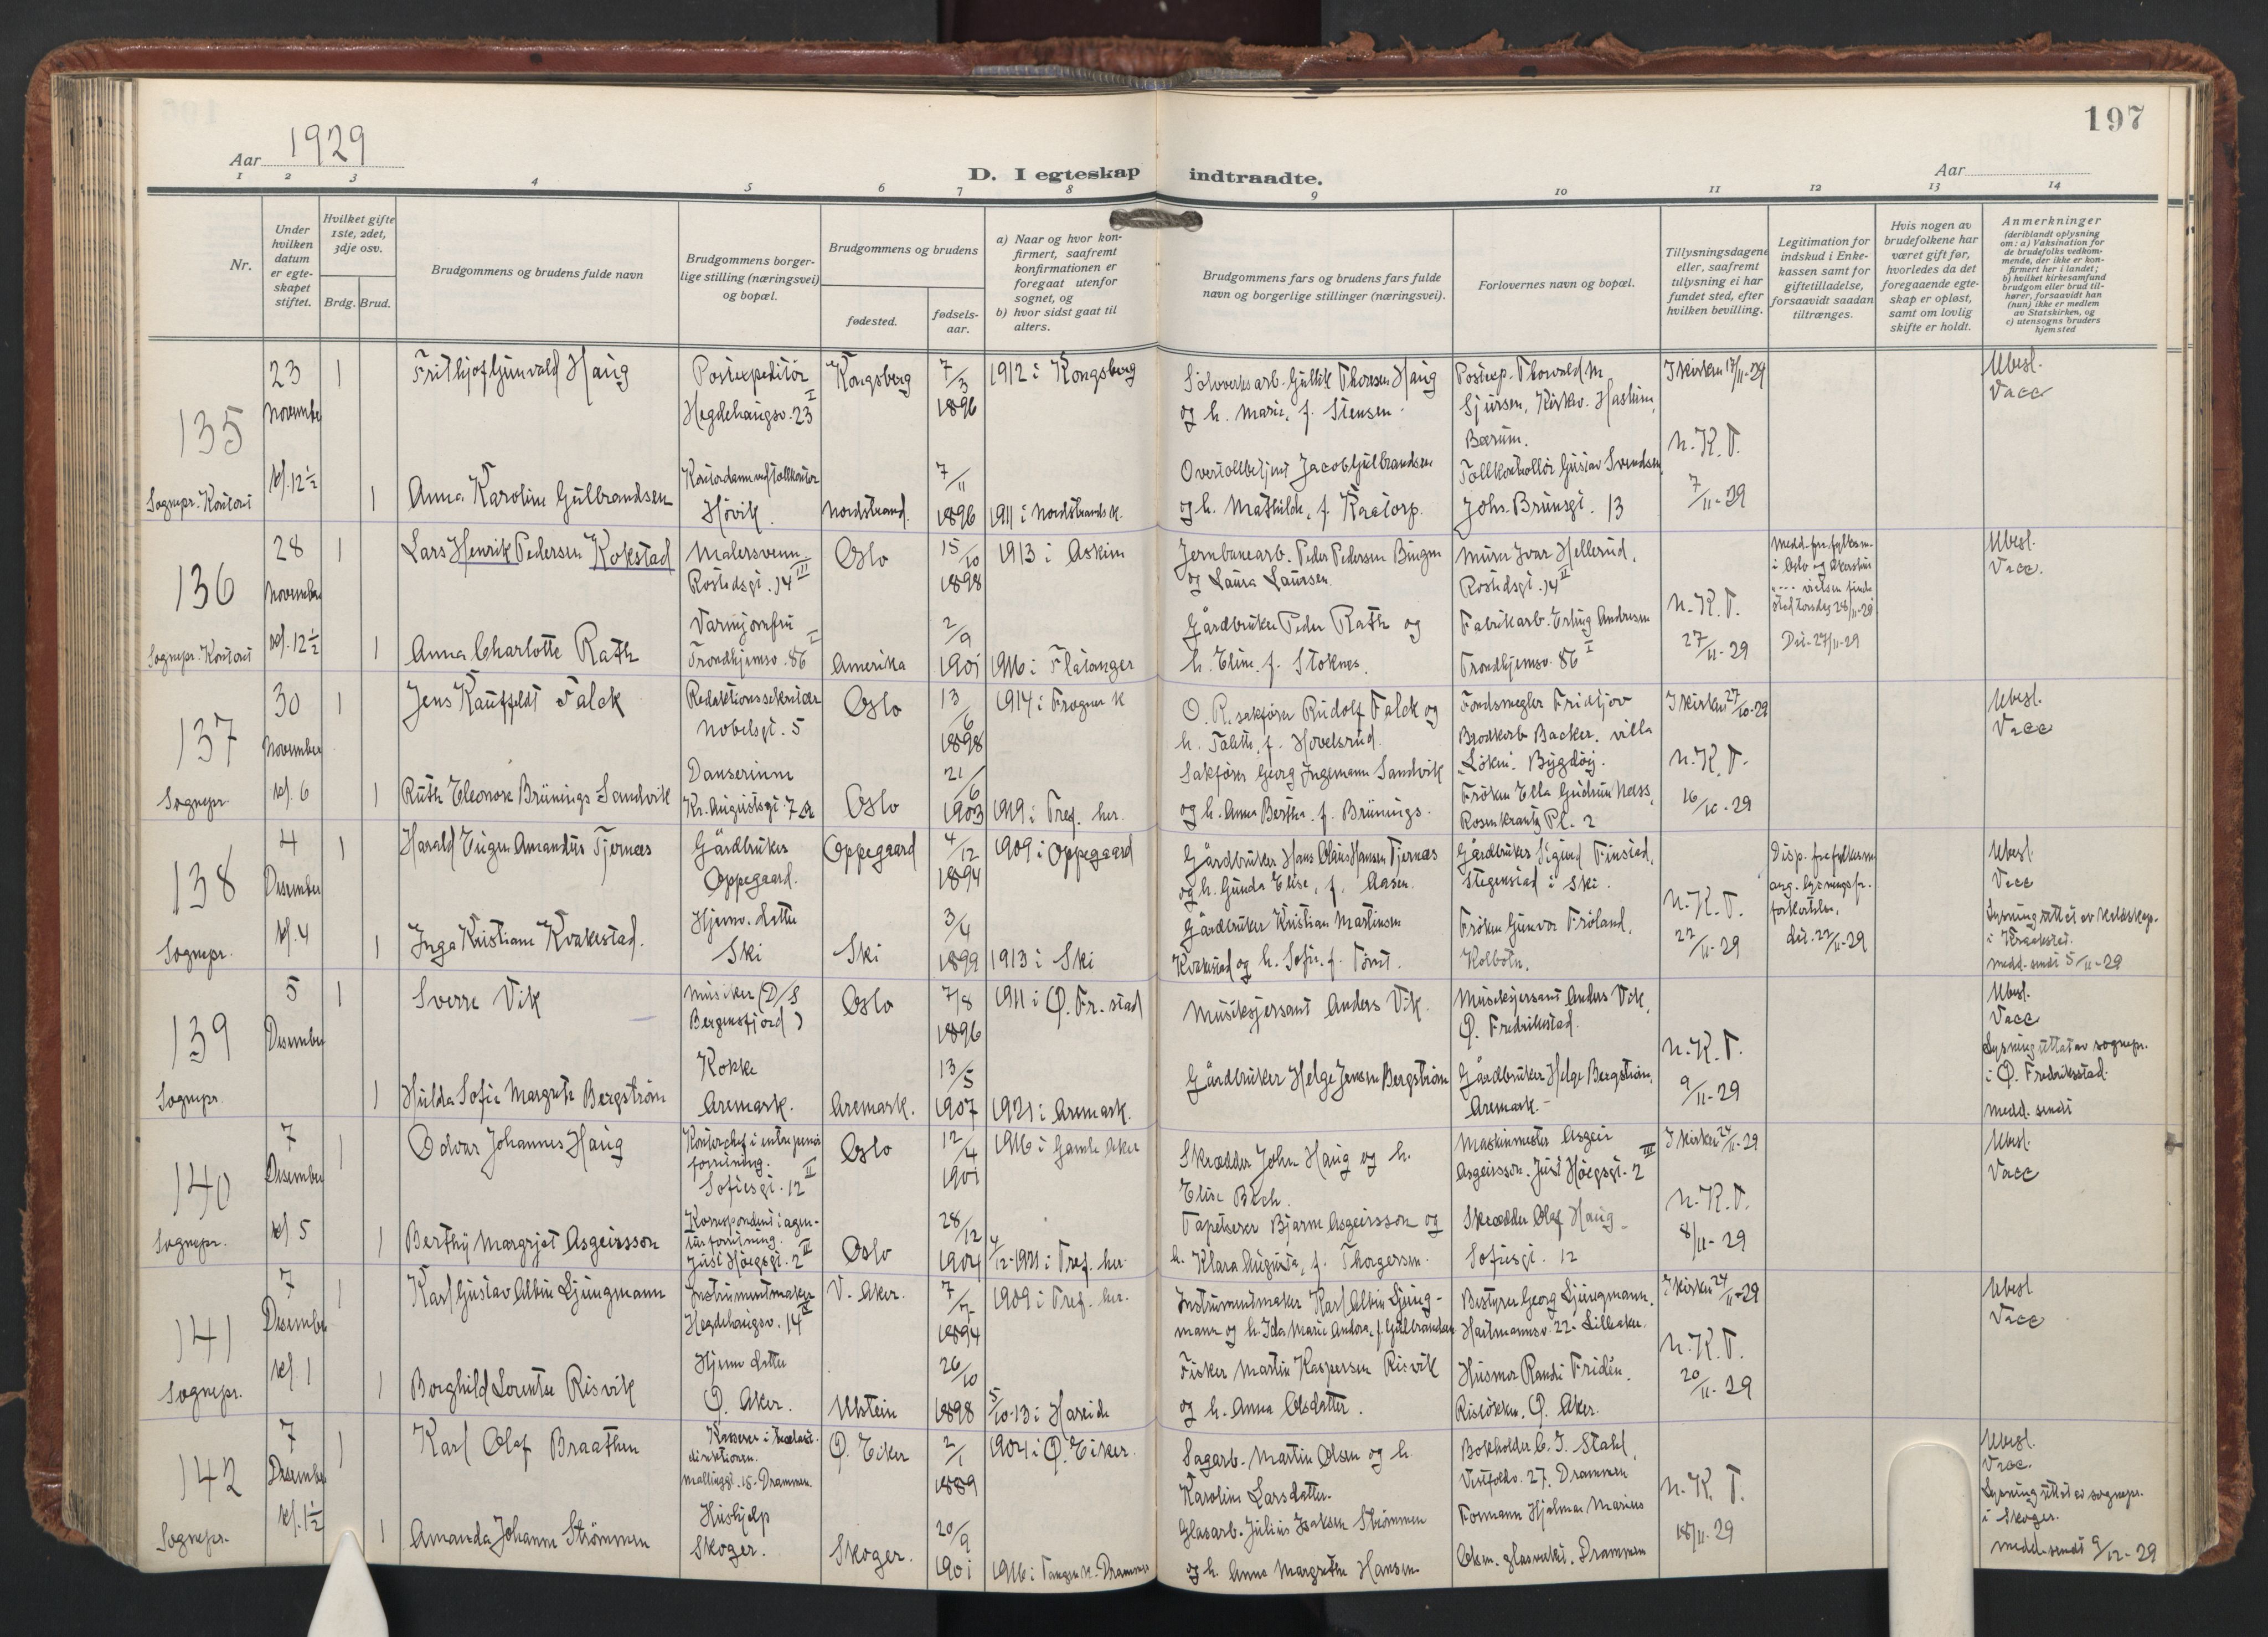 197
Aar 1929
D. I egteskap indtraadte.
Aar
1 2 3 4 5 6 7 8 9 10 11 12 13 14
Nr.
Under hvilken datum er egteskapet stiftet.
Hvilket gifte 1ste, 2det, 3dje osv.
Brdg. Brud.
Brudgommens og brudens fulde navn
Brudgommens borgerlige stilling (næringsvei) og bopæl.
Brudgommens og brudens
fødested.
fødselsaar.
a) Naar og hvor konfirmert, saafremt konfirmationen er foregaat utenfor sognet, og
b) hvor sidst gaat til alters.
Brudgommens fars og brudens fars fulde navn og borgerlige stillinger (næringsvei).
Forlovernes navn og bopæl.
Tillysningsdagene eller, saafremt tillysning ei har fundet sted, efter hvilken bevilling.
Legitimation for indskud i Enkekassen samt for giftetilladelse, forsaavidt saadan tiltrænges.
Hvis nogen av brudefolkene har været gift før, hvorledes da det foregaaende egteskap er opløst, samt om lovlig skifte er holdt.
Anmerkninger
(deriblandt oplysning om: a) Vaksination for de brudefolks vedkommende, der ikke er konfirmert her i landet;
b) hvilket kirkesamfund brudgom eller brud tilhører, forsaavidt han (hun) ikke er medlem av Statskirken, og
c) utensogns bruders hjemsted
135
23 November kl. 12½
Sognepr. Kontort
1 Frithjof Gunvald Haug
Postexpeditør
Hegdehaugsv. 23 I
Kongsberg
7/3 1896
1912 i Kongsberg
Sølvverksarb. Gullik Thoresen Haug
og h. Marie, f. Stensen.
Postexp. Thorvald M.
Sjursen, Kirkev. Haslum,
Bærum.
I kirken 17/11-29
Ubesl.
Vacc
1 Anna Karoline Gulbrandsen
Kontordame ved tollkontor
Høvik.
Nordstrand.
7/11 1896
1911 i Nordstrands k.
Overtollbetjent Jacob Gulbrandsen
og h. Mathilde, f. Kaatorp.
Tollkontrollør Gustav Svendsen,
Johs. Brunsgt. 13
N. K. T.
7/11-29
136
28 November kl. 12½
Sognepr. Kontort
1 Lars Henrik Pedersen Kokstad
Malersvenn
Rostedsgt. 14 III
Oslo
15/10 1898
1913 i Askim
Jernbanearb. Peder Pedersen Bingen
og Laura Laursen.
Murer Ivar Hellerud,
Rostedsgt. 14 II
Medd. fra fylkesm.
i Oslo og Akershus
vielsen finde
sted torsdag 28/11-29
Dat. 27/11-29
Ubesl.
Vacc.
1 Anna Charlotte Rath
Varmjomfru
Trondhjemsv. 86 I
Amerika
2/9 1901
1916 i Flatanger
Gårdbruker Peder Rath og
h. Eline, f. Stoknes.
Fabrikarb. Erling Andresen
Trondhjemsv. 86 I
N. K. T.
27/11-29
137
30 November kl. 6
Sognepr.
1 Jens Kauffeldt Falck
Redaktionssekretær
Nobelsgt. 5
Oslo
13/6 1898
1914 i Frogner k
O. R. sakfører Rudolf Falck og
h. Tabitha, f. Hovelsrud.
Fondsmegler Fridtjov
Brodkorb Backer, villa
"Løkin" Bygdøy.
I kirken 27/10-29
Ubesl.
Vacc
1 Ruth Eleonore Brünings Sandvik
Danserinne
Kr. Augustsgt. 7 a
Oslo
21/6 1903
1919 i Tref. her.
Sakfører Georg Ingemann Sandvik
og h. Anna Bertha, f. Brünings.
Frøken Ella Gudrun Næss,
Rosenkrantz Pl. 2
N. K. T.
16/10-29
138
4 Desember kl. 4
Sognepr.
1 Harald Eugen Amandus Tjernæs
Gårdbruker
Oppegaard.
Oppegaard
4/12 1894
1909 i Oppegaard
Gårdbruker Hans Olaus Hansen Tjernæs
og h. Gunda Elise, f. Aasen.
Gårdbruker Sigurd Finstad,
Stegenstad i Ski.
Disp. fra fylkesm.
ang. lysningsfr.
forkortelse,
dat. 22/11-29
Ubesl.
Vacc
Lysning uttat av
i Kraakstad.
Medd. sendt 5/11-29
1 Inga Kristiane Kvakestad.
Hjemv. datter
Ski
Ski
3/4 1899
1913 i Ski
Gårdbruker Kristian Martinsen
Kvakestad og h. Sofie, f. Tømt.
Frøken Gunvor Frøland,
Kolbotn.
N. K. T.
22/11-29
139
5 Desember
Sognepr.
1 Sverre Vik
Musiker (D/S
Bergensfjord)
Oslo
7/8 1896
1911 i Ø. Fr.stad
Musiksjersant Anders Vik.
Musiksjersant Anders Vik,
Ø. Fredrikstad.
Ubesl.
Vacc
Lysning uttat av sognepr.
i Ø. Fredriksstad.
medd. sendt
1 Hulda Sofie Margrete Bergstrøm
Kokke
Aremark.
Aremark.
13/5 1907
1921 i Aremark.
Gårdbruker Helge Jensen Bergstrøm
Gårdbruker Helge Bergstrøm,
Aremark.
N. K. T.
9/11-29
140
7 Desember kl 5
Sognepr.
1 Odvar Johannes Haug
Kontorchef i entreprenør
forretning.
Sofiesgt. 12 II
Oslo
12/4 1901
1916 i Gamle Aker
Skrædder John Haug og h.
Elise Bech.
Maskinmester Asgeir
Asgeirsson, Just Høegsgt. 2 III
I kirken 24/11-29
Ubesl.
Vacc
1 Berthy Margrjet Asgeirsson
Korrespondent i agen-
tur forretning.
Just Høegsgt. 2 III
Oslo
28/12 1904
4/12-1921 i Tref. her.
Tapetserer Bjarne Asgeirsson og
h. Klara Augusta, f. Thorgersen.
Skrædder Olaf Haug
Sofiesgt. 12
N. K. T.
8/11-29
141
7 Desember kl. 1
Sognepr.
1 Karl Gustav Albin Ljungmann
Instrumentmaker
Hegdehaugsv. 14 II
V. Aker.
1894
1909 i Tref. her.
Instrumentmaker Karl Albin Ljung-
mann og h. Ida Marie Andora, f. Gulbrandsen
Bestyrer Georg Ljungmann,
Hartmannsv. 22. Lilleaker.
I kirken 24/11-29
Ubesl
Vacc
1 Borghild Lorentse Risvik
Hjemv. datter
Ø. Aker.
Ulstein
26/10 1898
5/10-13 i Hareide
Fisker Martin Kaspersen Risvik
og h. Anna Olsdatter.
Husmor Randi Fridén,
Risløkka, Ø. Aker.
N. K. T.
20/11-29
142
7 Desember kl. 1½
Sognepr.
1 Karl Olaf Braathen
Kasserer i
direktionen.
Mallinggt. 15. Drammen.
Ø. Eiker
2/1 1889
1904 i Ø. Eiker.
Sagarb. Martin Olsen og h.
Karoline Larsdatter.
Bokholder C. J. Stahl,
Vestfoldv. 27, Drammen
Ubesl.
Vacc.
Lysning uttat av sognepr.
i Skoger.
medd. sendt 9/12-29
1 Amanda Johanne Strømmen
Hushjelp
Skoger.
Skoger.
20/9 1901
1916 i Tangen k. Drammen
Glasarb. Julius Isaksen Strømmen
og h. Anna Margrethe Hansen
Formann Hjalmar Marius
glasverk, Drammen
N. K. T.
18/11-29